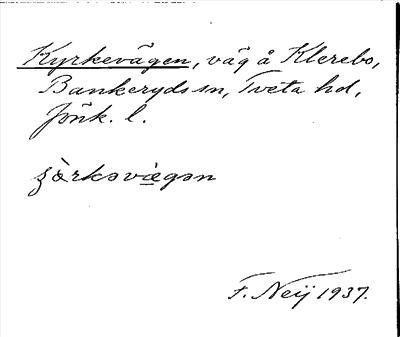 Kyrkevägen, väg å Klerebo,
Bankeryds sn, Tveta hd,
Jönk. l.
ʒàrkəvæ̀gən
F. Neij 1937.